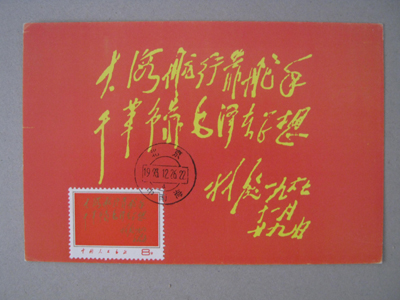 大海航行靠舵手
干革命靠毛泽东思想
林彪 一九六七
十一月
廿九日
中国人民邮政 8分